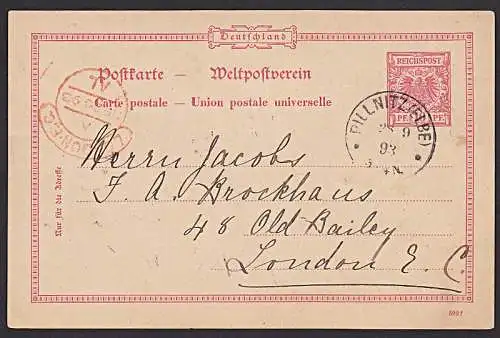 Deutschland
Postkarte — Weltpostverein
Carte postale — Union postale universelle
REICHSPOST
PF. PF.
PILLNITZ (ELBE)
9
93
N.
Nur für die Adresse
Herrn Jacobs
F. A. Brockhaus
48 Old Bailey
London E. C.